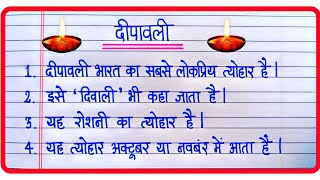 दीपावली
1. दीपावली भारत का सबसे लोकप्रिय त्योहार है |
2. इसे 'दिवाली' भी कहा जाता है |
3. यह रोशनी का त्योहार है |
4. यह त्योहार अक्टूबर या नवबंर में आता है |